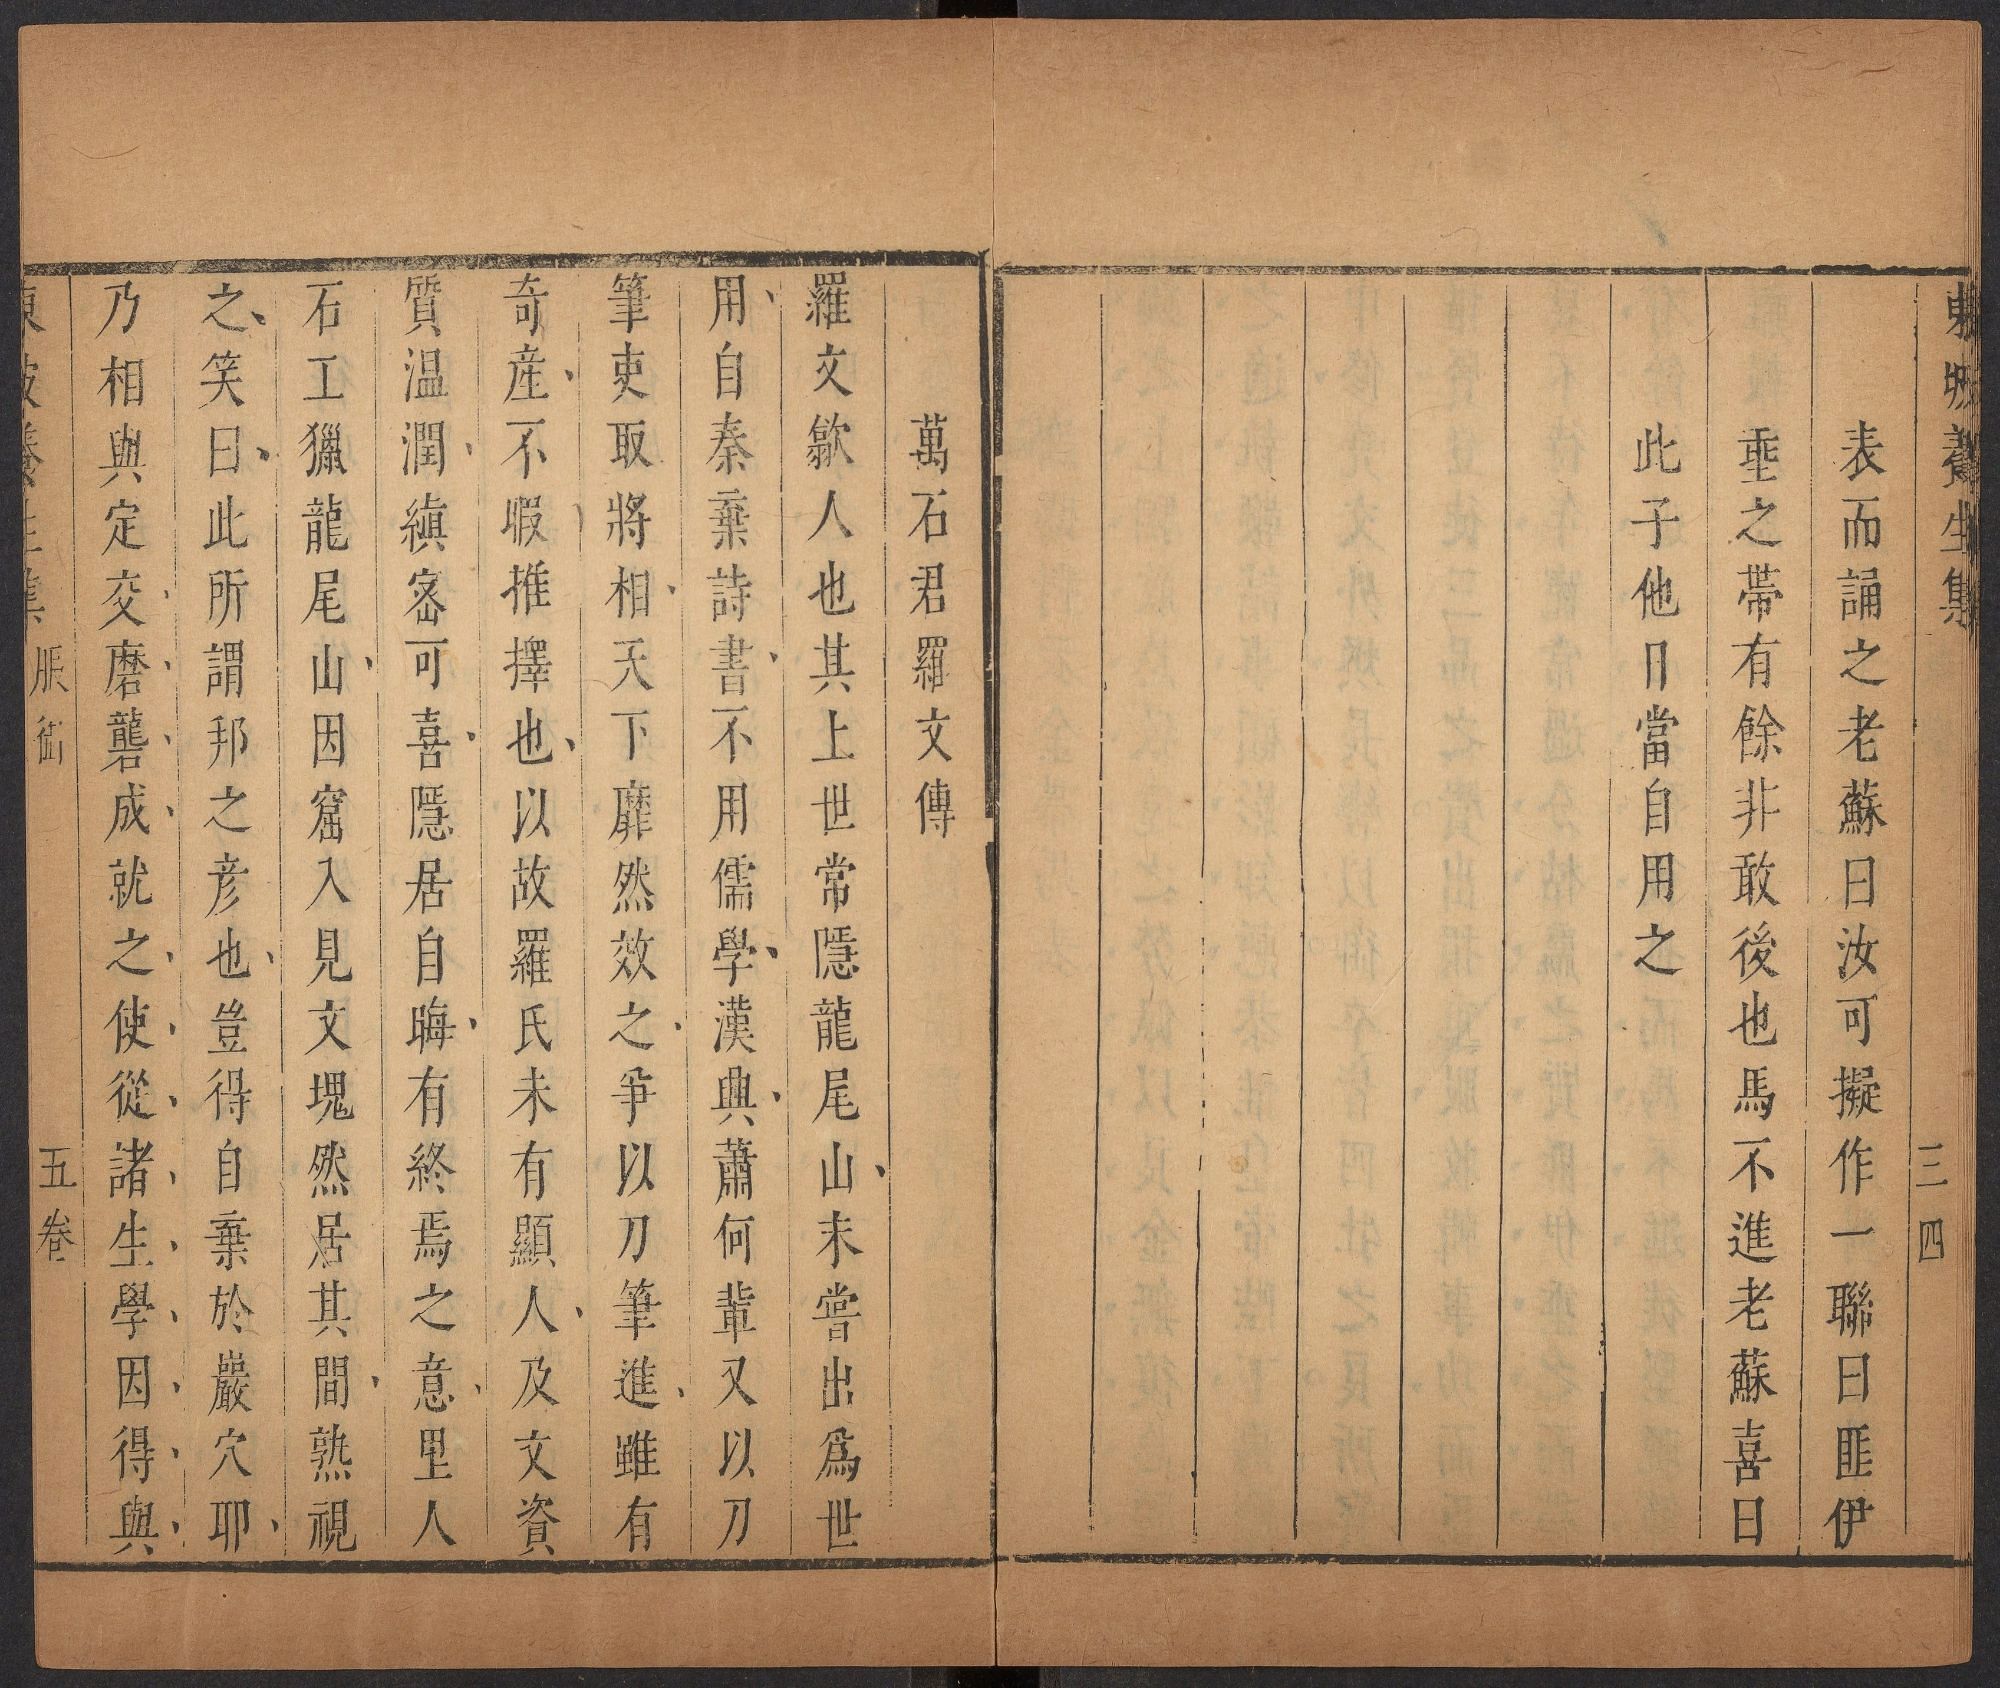 東坡養生集
三四
表而誦之老蘇曰汝可擬作一聯曰匪伊
垂之帶有餘非敢後也馬不進老蘇喜曰
此子他日當自用之
萬石君羅文傳
羅文歙人也其上世常隱龍尾山未嘗出爲世
用自秦棄詩書不用儒學漢興蕭何輩又以刀
筆吏取將相天下靡然效之爭以刀筆進雖有
奇産不暇推擇也以故羅氏未有顯人及文資
質温潤縝密可喜隱居自晦有終焉之意里人
石工獵龍尾山因窟入見文塊然居其間熟視
之笑曰此所謂邦之彦也豈得自棄於巖穴耶
乃相與定交磨礱成就之使從諸生學因得與
東坡養生集 服御 五卷